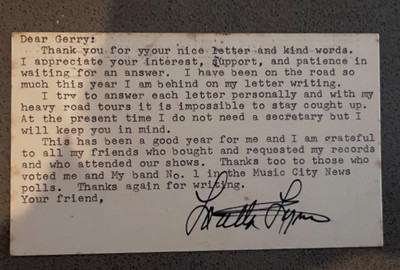 Dear Gerry:
Thank you for yyour nice letter and kind words.
I appreciate your interest, support, and patience in
waiting for an answer. I have been on the road so
much this year I am behind on my letter writing.
I try to answer each letter personally and with my
heavy road tours it is impossible to stay cought up.
At the present time I do not need a secretary but I
will keep you in mind.
This has been a good year for me and I am grateful
to all my friends who bought and requested my records
and who attended our shows. Thanks too to those who
voted me and My band No. 1 in the Music City News
polls. Thanks again for writing.
Your friend,
Loretta Lynn